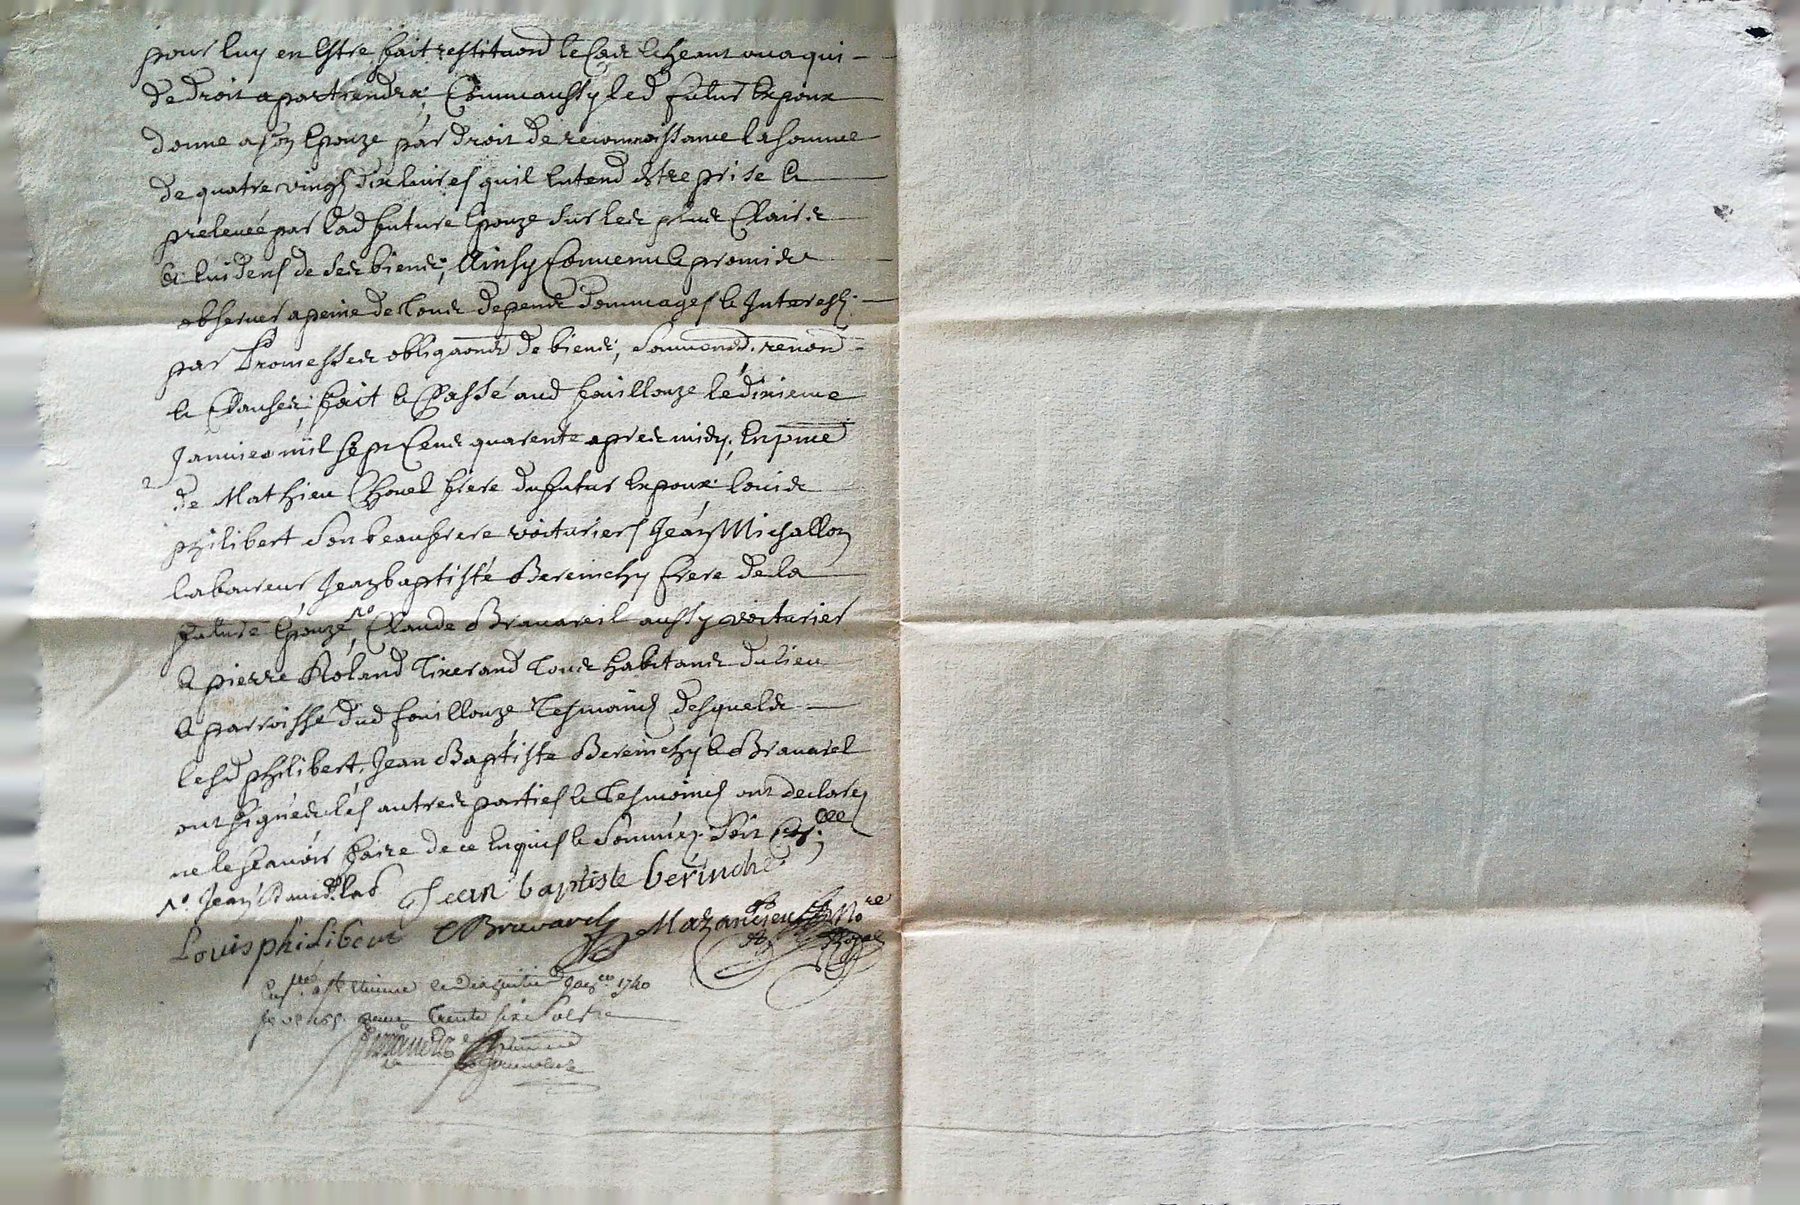 pour luy en Estre fait restituon̅ le Cas Escheant ou a qui
de droit apartiendra; Comm'aussy led futur Expoux
donne a son Epouze par droit de reconnoissance la somme
de quatre vingt dix livres quil Entend estre prise Et
prelevée par lad future Epouze sur les plus Clairs
Et Evidens de ses biens; Ainsy Convenu Et promis
observer a peine de tous depens dommages Et Interests
par Promesses obligaons de biens, renon
Et Clauses; fait Et Passé aud fouillouze le dixieme
Janvier mil sept Cens quarente apres midy, En pnce
de Mathieu frere du futur Expoux; Louis
philibert son beaufrere voituriers Jean Michallon
laboureur Jean baptiste Bereinchy frere de la
future Epouze, Claude Bravareil aussy voiturier
Et pierre Roland tixerand tous habitans du lieu
Et parroisse dud fouillouze tesmoins desquels
lesd philibert, Jean Baptiste Bereinchy Et Bravarel
ont signés les autres parties Et tesmoins ont declaré
ne le sçavoir faire de ce Enquis Et sommés soit
Jean baptiste berinche
Louis philibert Bravarel Mazancieu No.re
Royal
a st Etienne le dix janer 1740
trente six sols